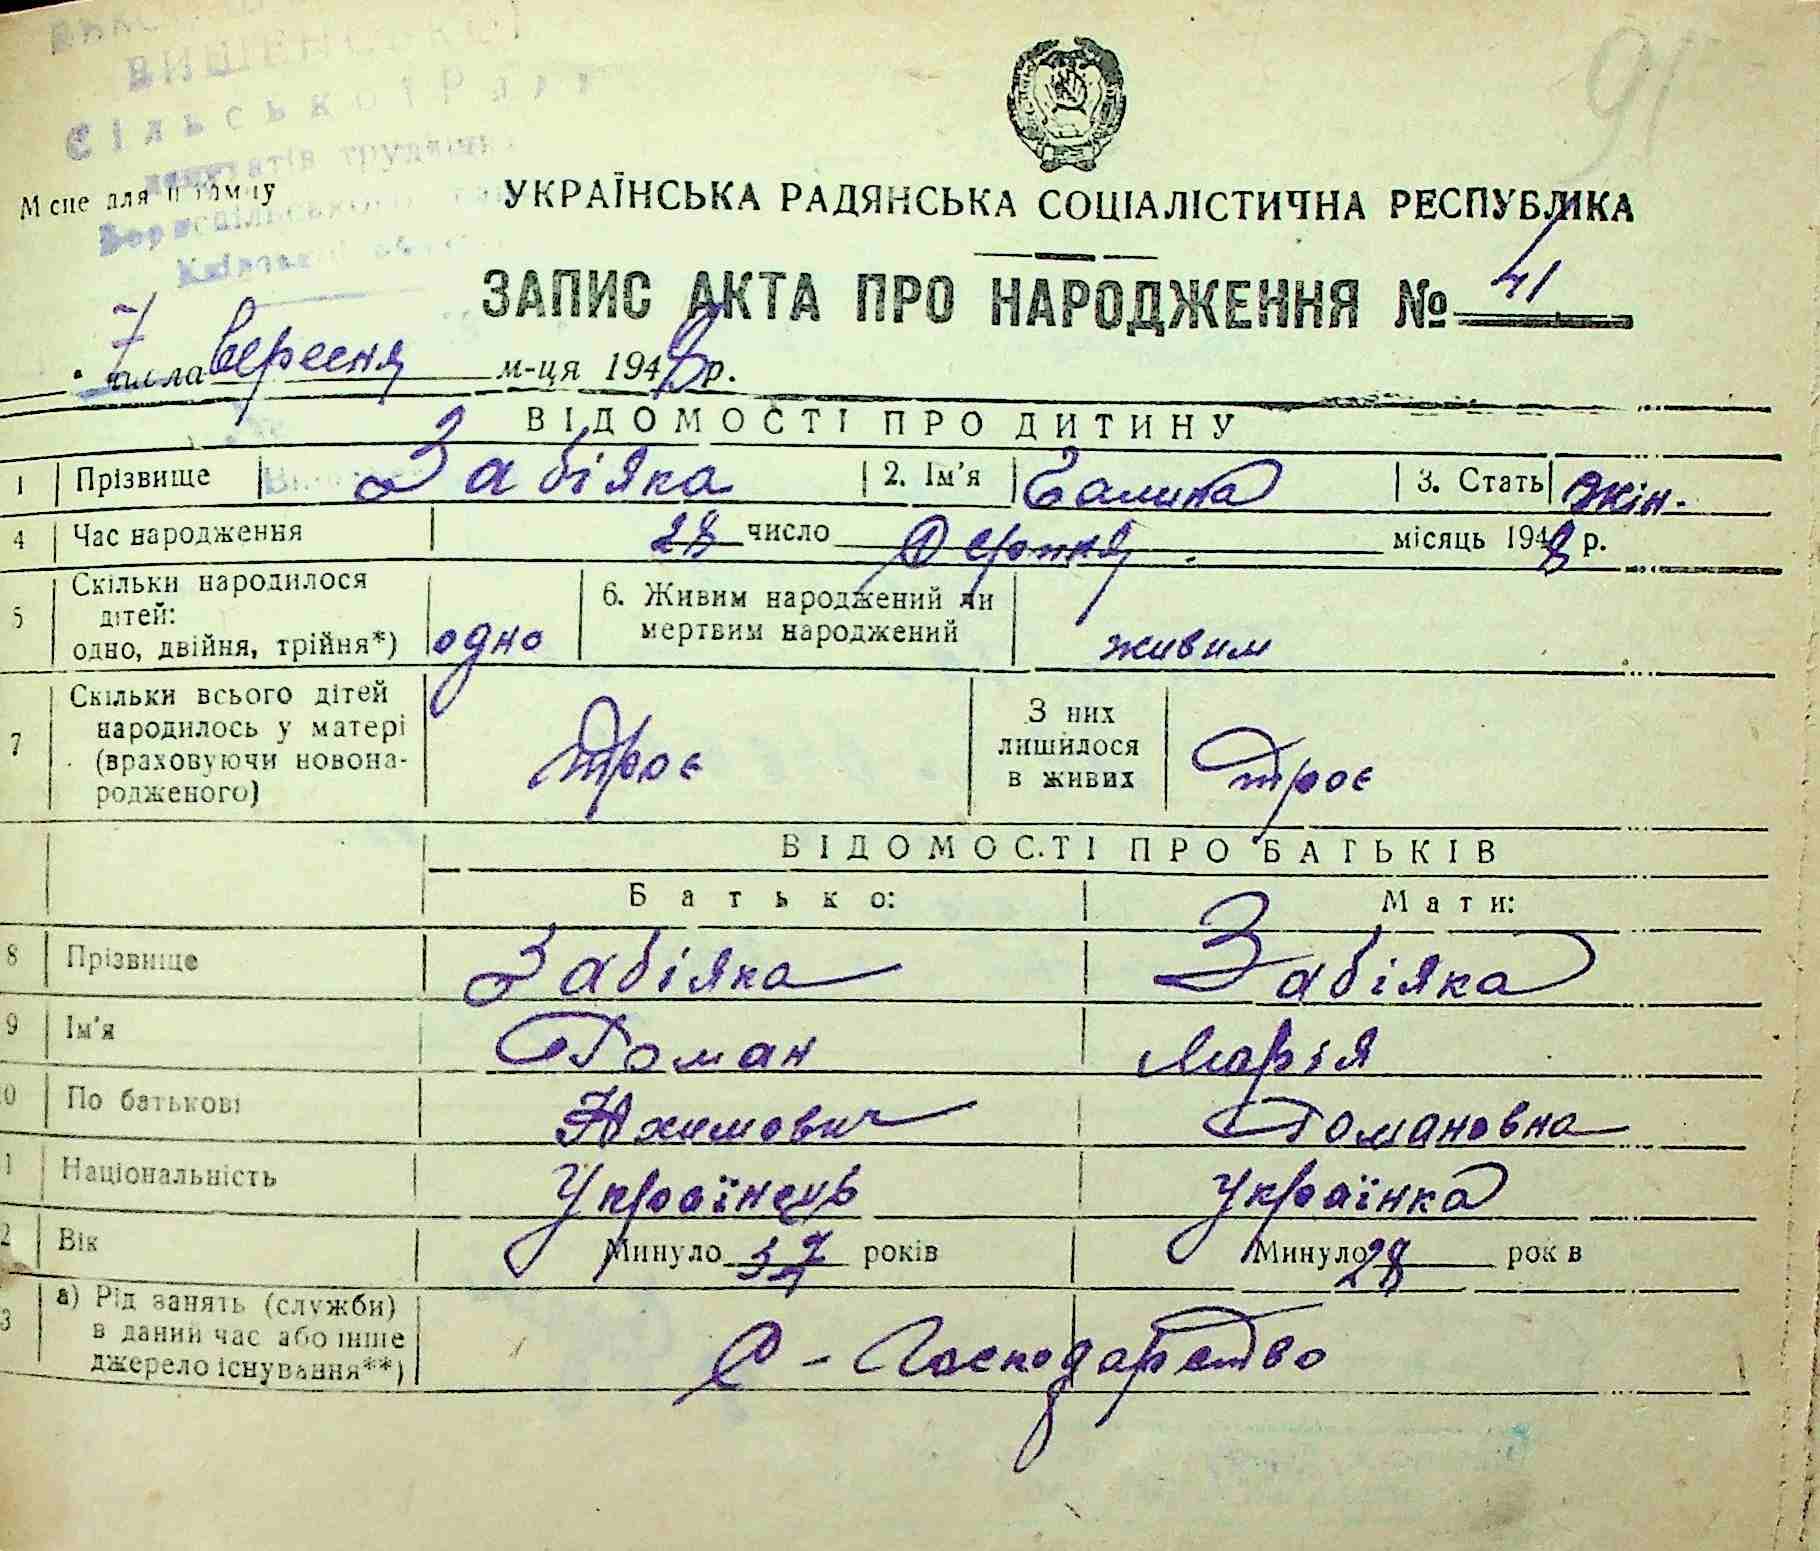 ВИШЕНСЬКОІ
Сільської Ради
депутатів трудящих
Бориспільського
Київської
91
Місце для штампу
УКРАЇНСЬКА РАДЯНСЬКА СОЦІАЛІСТИЧНА РЕСПУБЛІКА
ЗАПИС АКТА ПРО НАРОДЖЕННЯ № 41
7 числа вересня м-ця 1948 р.
ВІДОМОСТІ ПРО ДИТИНУ
1 Прізвище Забіяка 2. Ім'я Галина 3. Стать жін.
4 Час народження 28 число Серпня місяць 1948 р.
5 Скільки народилося дітей: одно, двійня, трійня*) одно 6. Живим народжений чи мертвим народжений живим
7 Скільки всього дітей народилось у матері (враховуючи новонародженого) троє З них лишилося в живих троє
ВІДОМОСТІ ПРО БАТЬКІВ
Батько: Мати:
8 Прізвище Забіяка Забіяка
9 Ім'я Роман Марія
0 По батькові Яхимович Романовна
1 Національність Українець Українка
2 Вік Минуло 37 років Минуло 28 років
3 а) Рід занять (служби) в даний час або інше джерело існування**) С-Господарство